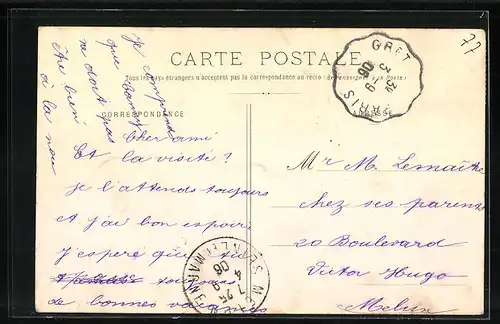 77
CARTE POSTALE
Tous les pays étrangers n'acceptent pas la correspondance au recto (Se renseigner à la Poste)
CORRESPONDANCE
ADRESSE
GRET
PARIS
3 32
-9
06
Cher ami
Et la visite?
je l'attends toujours
et j'ai bon espoir.
J'espère que tu
toujours
de bonnes vacances
Je comprends
que
ne doit pas
être bien
à la
Mr M. Lemaître
chez ses parents
20 Boulevard
Victor Hugo
Melun
SNE ET MARNE
7 25
4 -9
06